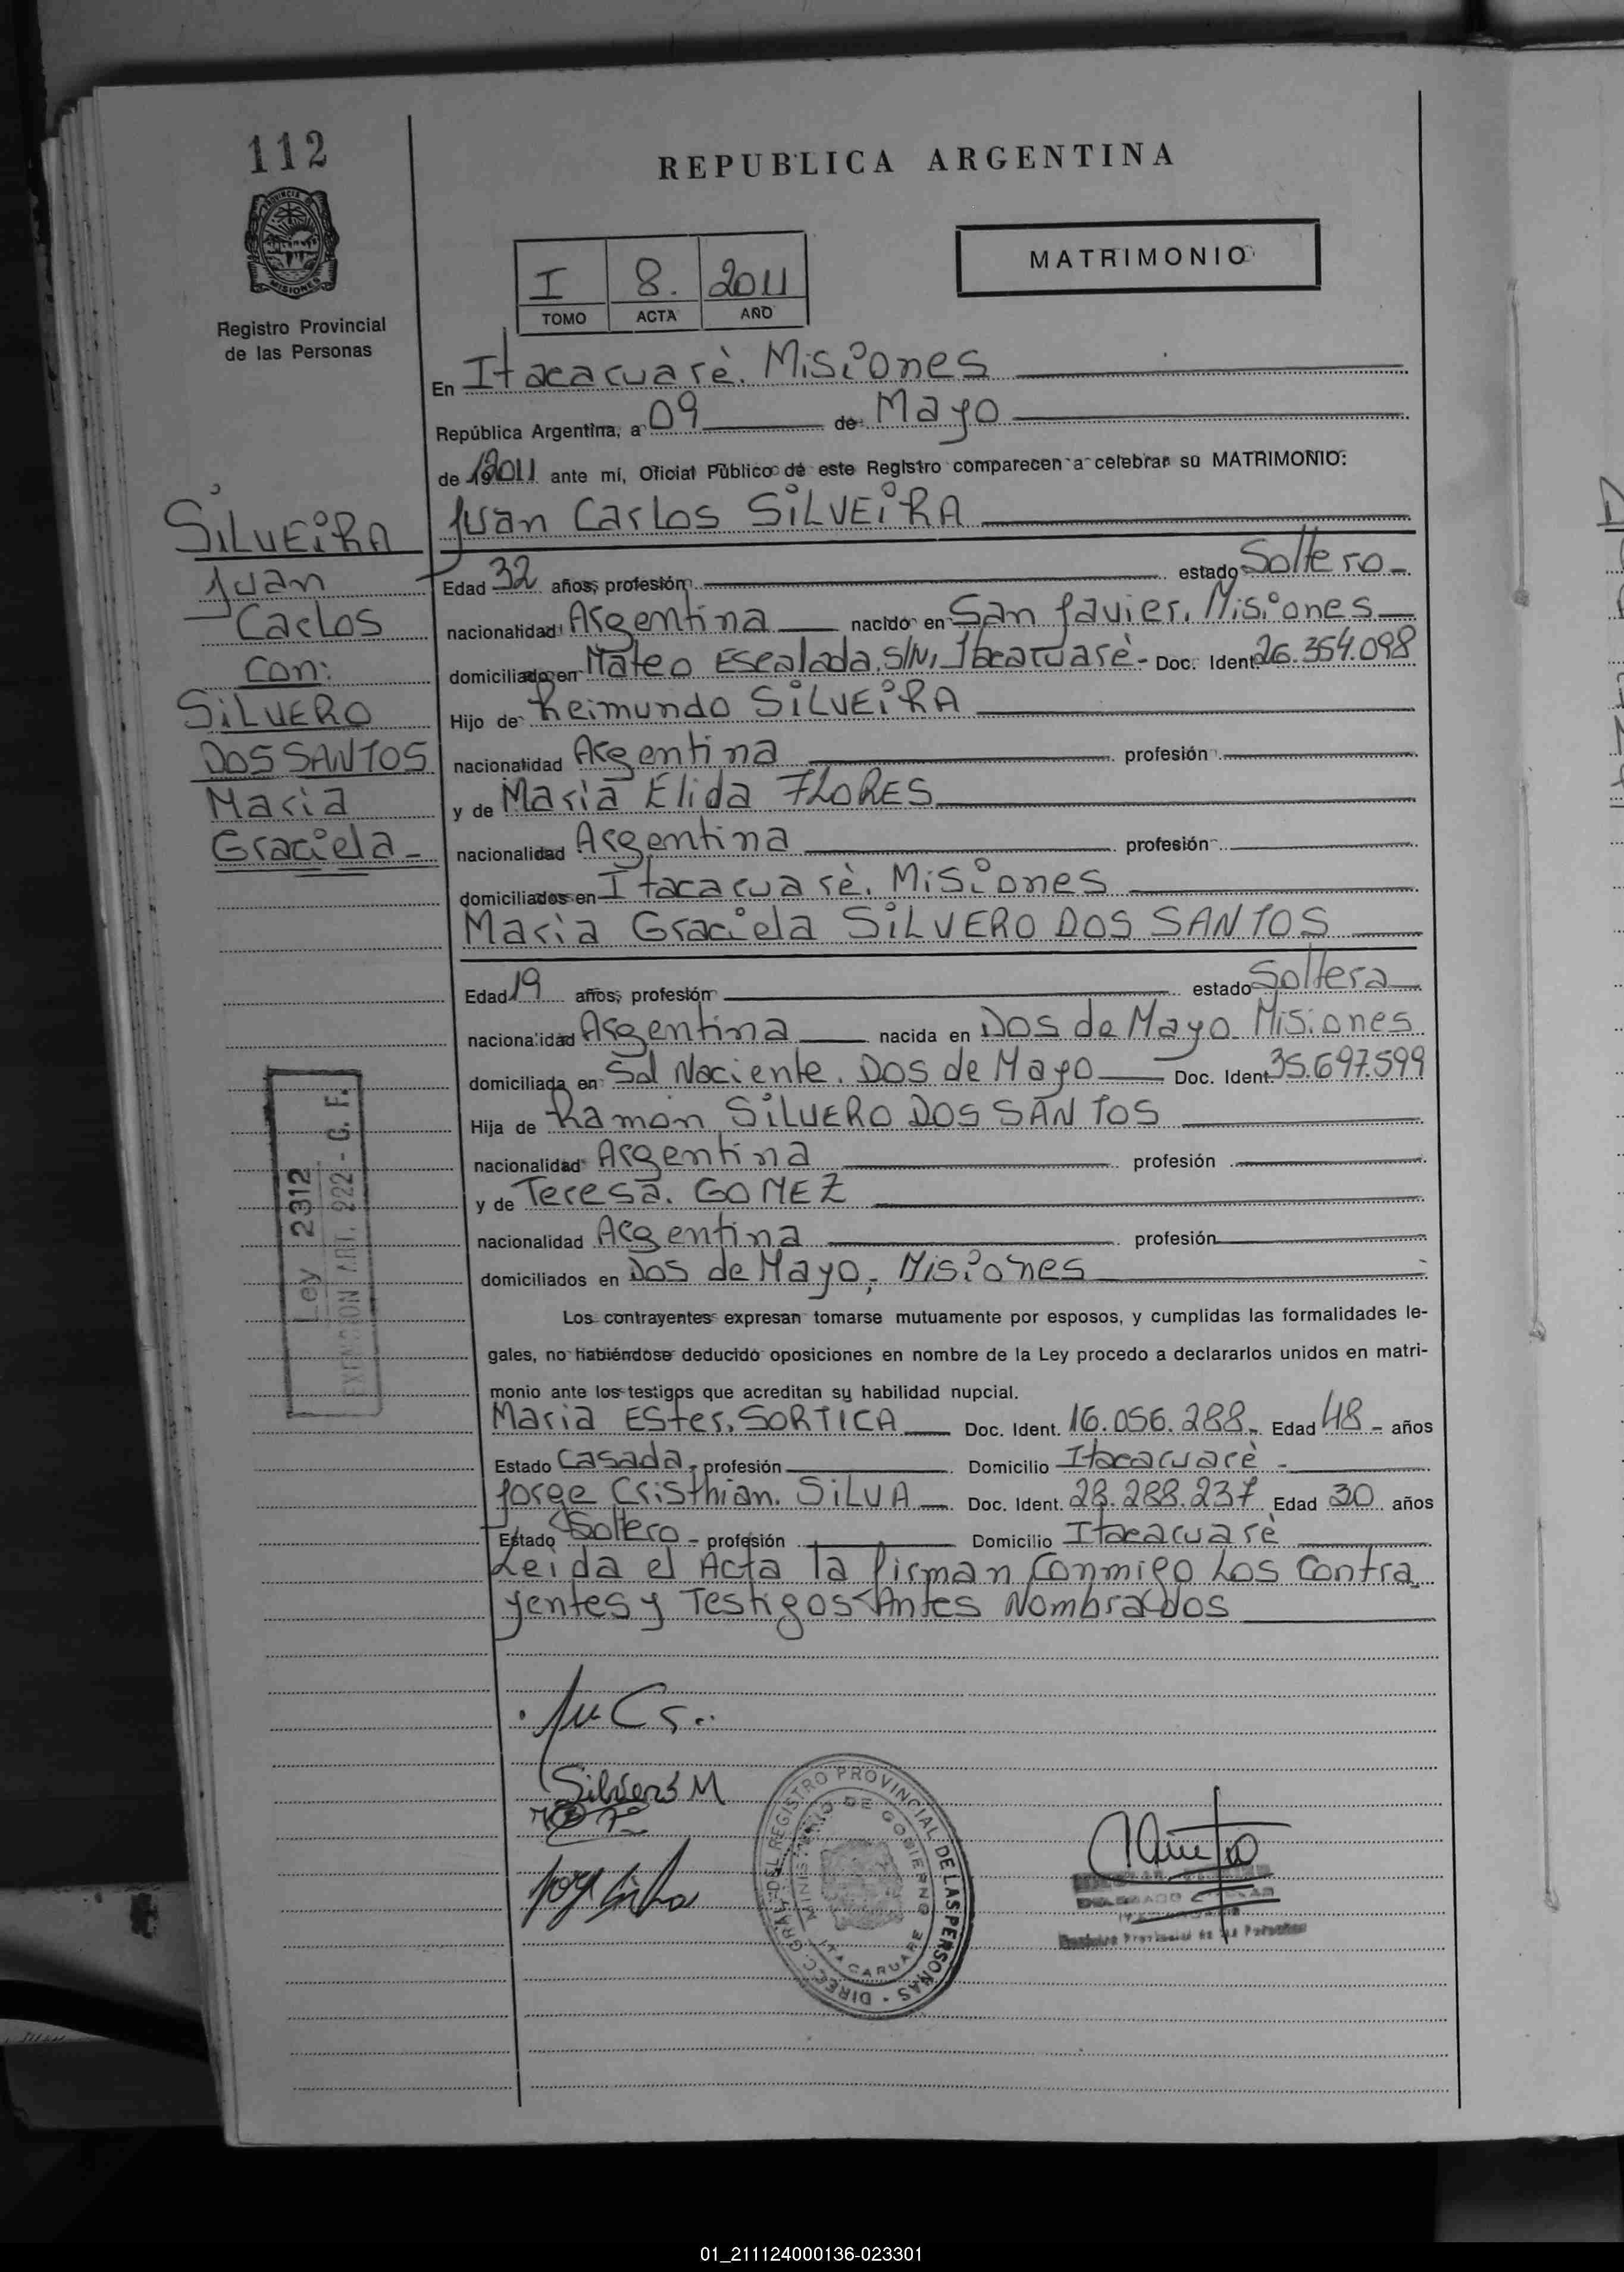 112
REPUBLICA ARGENTINA
PROVINCIA DE
MISIONES
Registro Provincial
de las Personas
MATRIMONIO
I 8. 2011
TOMO ACTA AÑO
En Itacaruarè. Misiones
República Argentina, a 09 de Mayo
de 192011 ante mí, Oficial Público de este Registro comparecen a celebrar su MATRIMONIO:
Juan Carlos SiLVEiRA
Edad 32 años, profesión estado Soltero
nacionalidad Argentina nacido en San Javier, Misiones
domiciliado en Mateo Escalada, S/N, Itacaruarè - Doc. Ident. 26.354.098
Hijo de Reimundo SiLVEiRA
nacionalidad Argentina profesión
y de Marià Elida FLORES
nacionalidad Argentina profesión
domiciliados en Itacaruarè. Misiones
Marìa Graciela SiLVERO DOS SANTOS
Edad 19 años, profesión estado Soltera
nacionalidad Argentina nacida en Dos de Mayo Misiones
domiciliada en Sol Naciente. Dos de Mayo Doc. Ident. 35.697.599
Hija de Ramòn SiLVERO DOS SANTOS
nacionalidad Argentina profesión
y de Teresa. GOMEZ
nacionalidad Argentina profesión
domiciliados en Dos de Mayo, Misiones
Los contrayentes expresan tomarse mutuamente por esposos, y cumplidas las formalidades le-
gales, no habiéndose deducido oposiciones en nombre de la Ley procedo a declararlos unidos en matri-
monio ante los testigos que acreditan su habilidad nupcial.
Maria Ester. SORTICA Doc. Ident. 16.056.288 Edad 48 - años
Estado Casada - profesión Domicilio Itacaruarè -
Jorge Cristhian. SiLVA Doc. Ident. 28.288.237 Edad 30 años
Estado Soltero - profesión Domicilio Itacaruarè
Leida el Acta la firman conmigo Los Contra
yentes y Testigos Antes Nombrados
SiLVEiRA
Juan
Carlos
con:
SiLVERO
DOS SANTOS
Marìa
Graciela -
Ley 2312
EXENCION ART. 222 - C. F.
Silvero M
DIRECC. GRAL. DEL REGISTRO PROVINCIAL DE LAS PERSONAS
MINISTERIO DE GOBIERNO
ITACARUARE
Registro Provincial de las Personas
01_211124000136-023301